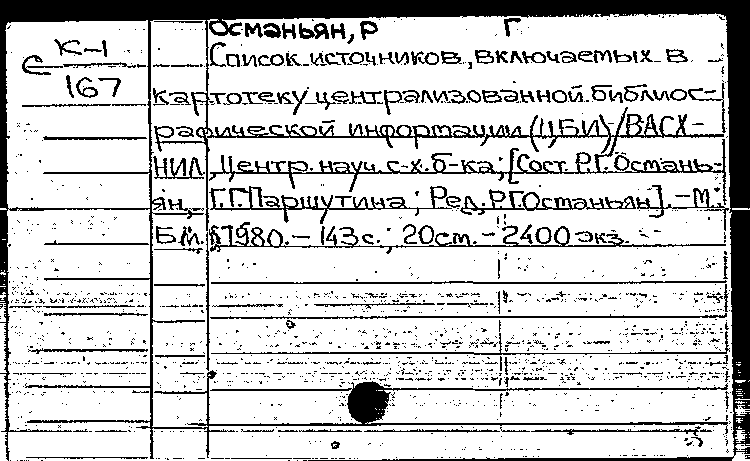 Османьян, Р Г
С К-1
167
Список источников, включаемых в
картотеку централизованной библиог-
рафической информации (ЦБИ)/ВАСХ-
НИЛ, Центр. науч. с-х. б-ка; [Сост. Р.Г. Османь-
ян, Г.Г. Паршутина; Ред. Р.Г. Османьян]. - М.:
Б.и., 1980. - 143 с.; 20 см. - 2400 экз.